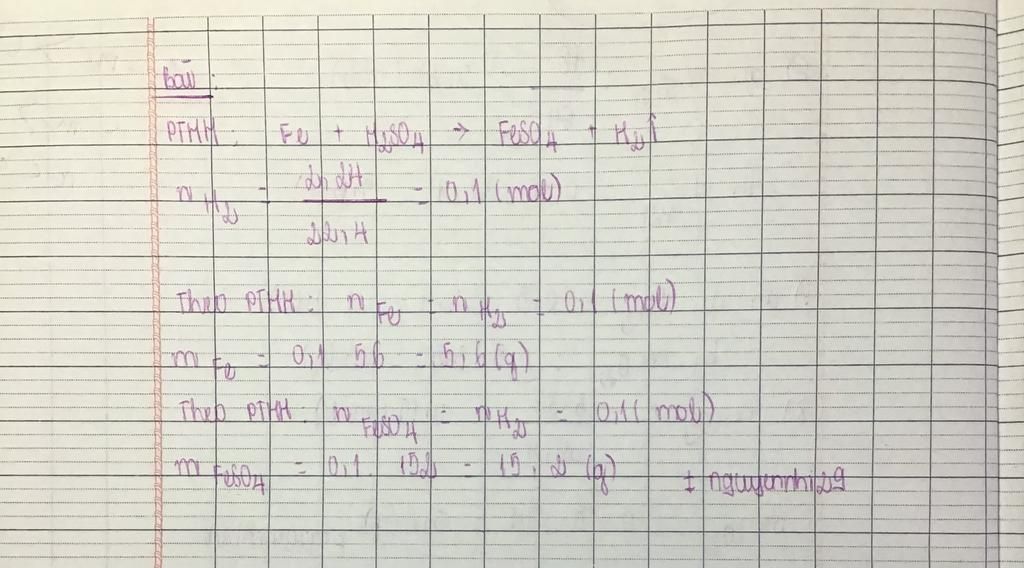 Bài:
PTHH: Fe + H₂SO₄ → FeSO₄ + H₂↑
n H₂ = 2,24 / 22,4 = 0,1 (mol)
Theo PTHH: n Fe = n H₂ = 0,1 (mol)
m Fe = 0,1 . 56 = 5,6 (g)
Theo PTHH: n FeSO₄ = n H₂ = 0,1 (mol)
m FeSO₄ = 0,1 . 152 = 15,2 (g) ± nguyennhi29